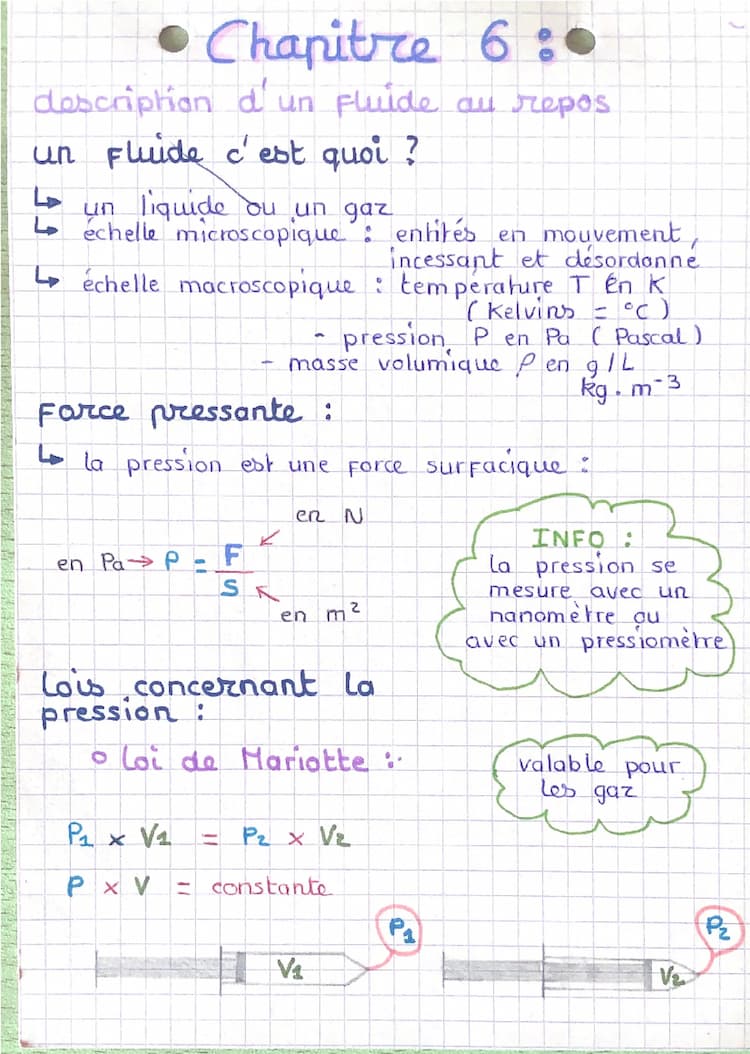 Chapitre 6 :
description d'un fluide au repos
un fluide c'est quoi ?
↳ un liquide ou un gaz
↳ échelle microscopique : entités en mouvement,
incessant et désordonné
↳ échelle macroscopique : température T En K
(Kelvins = °C)
- pression P en Pa (Pascal)
- masse volumique ρ en g/L
kg.m⁻³
Force pressante :
↳ la pression est une force surfacique :
en N
en Pa → P = F/S
en m²
INFO :
la pression se
mesure avec un
nanomètre ou
avec un pressiomètre
Lois concernant la
pression :
o Loi de Mariotte :
valable pour
les gaz
P1 x V1 = P2 x V2
P x V = constante
P1
V1
P2
V2